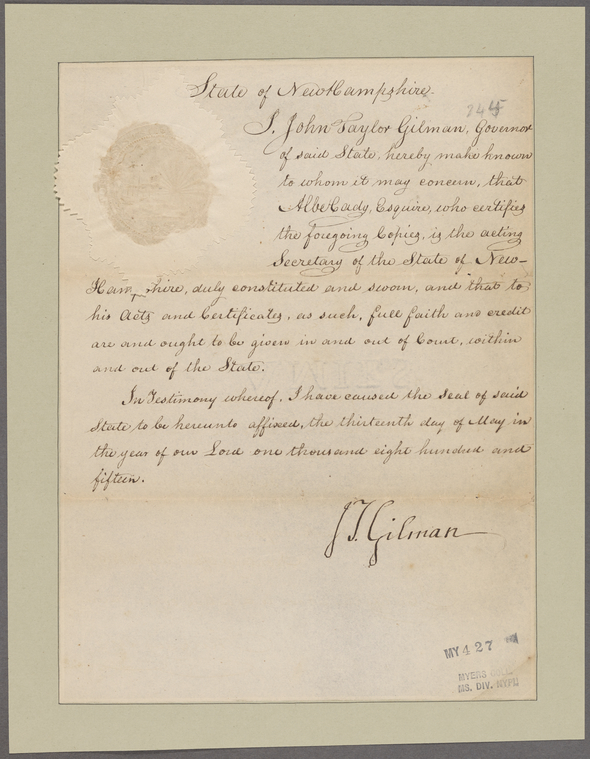 State of New Hampshire.
244
I, John Taylor Gilman, Governor
of said State, hereby make known
to whom it may concern, that
Albe Cady, Esquire, who certifies
the foregoing Copies, is the acting
Secretary of the State of New-
Hampshire, duly constituted and sworn, and that to
his Acts and Certificates, as such, full faith and credit
are and ought to be given in and out of Court, within
and out of the State.
In Testimony whereof, I have caused the Seal of said
State to be hereunto affixed, the thirteenth day of May in
the year of our Lord one thousand eight hundred and
fifteen.
J. T. Gilman
MY 4 27
MYERS
MS. DIV. NYPL